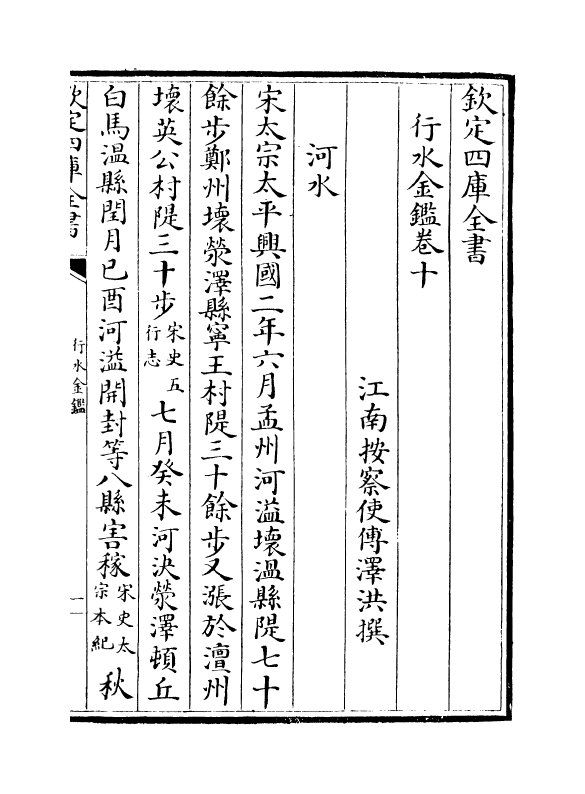 欽定四庫全書
行水金鑑卷十
江南按察使傅澤洪撰
河水
宋太宗太平興國二年六月孟州河溢壞溫縣隄七十
餘步鄭州壞滎澤縣寧王村隄三十餘步又漲於澶州
壞英公村隄三十步宋史五行志七月癸未河決滎澤頓丘
白馬溫縣閏月已酉河溢開封等八縣害稼宋史太宗本紀秋
欽定四庫全書
行水金鑑
一